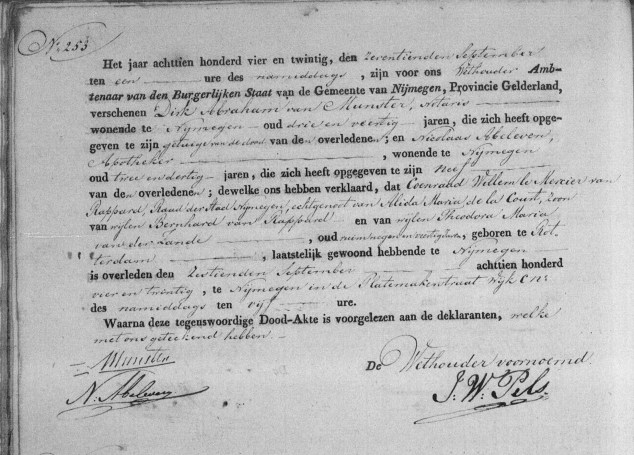 N. 253
Het jaar achttien honderd vier en twintig, den zeventienden September
ten een ure des namiddags, zijn voor ons Wethouder Amb-
tenaar van den Burgerlijken Staat van de Gemeente van Nijmegen, Provincie Gelderland,
verschenen Dirk Abraham van Munster, notaris
wonende te Nymegen oud drie en veertig jaren, die zich heeft opge-
geven te zijn getuige van de dood van den overledene; en Nicolaas Abeleven,
Apotheker, wonende te Nymegen
oud twee en dertig jaren, die zich heeft opgegeven te zijn neef
van den overledenen; dewelke ons hebben verklaard, dat Coenraad Willem le Mercier van
Rappard, Raad der stad Nymegen, echtgenoot van Alida Maria de la Court, zoon
van wijlen Bernhard van Rappard en van wijlen Theodora Maria
van der Lande, oud ruim negen en veertig jaren, geboren te Rot-
terdam, laatstelijk gewoond hebbende te Nymegen
is overleden den zestienden September achttien honderd
vier en twintig, te Nymegen in de Platemakerstraat Wyk C nr
des namiddags ten vyf ure.
Waarna deze tegenswoordige Dood-Akte is voorgelezen aan de deklaranten, welke
met ons geteekend hebben
Munster
De Wethouder voornoemd
N. Abeleven
J. W. Pels.